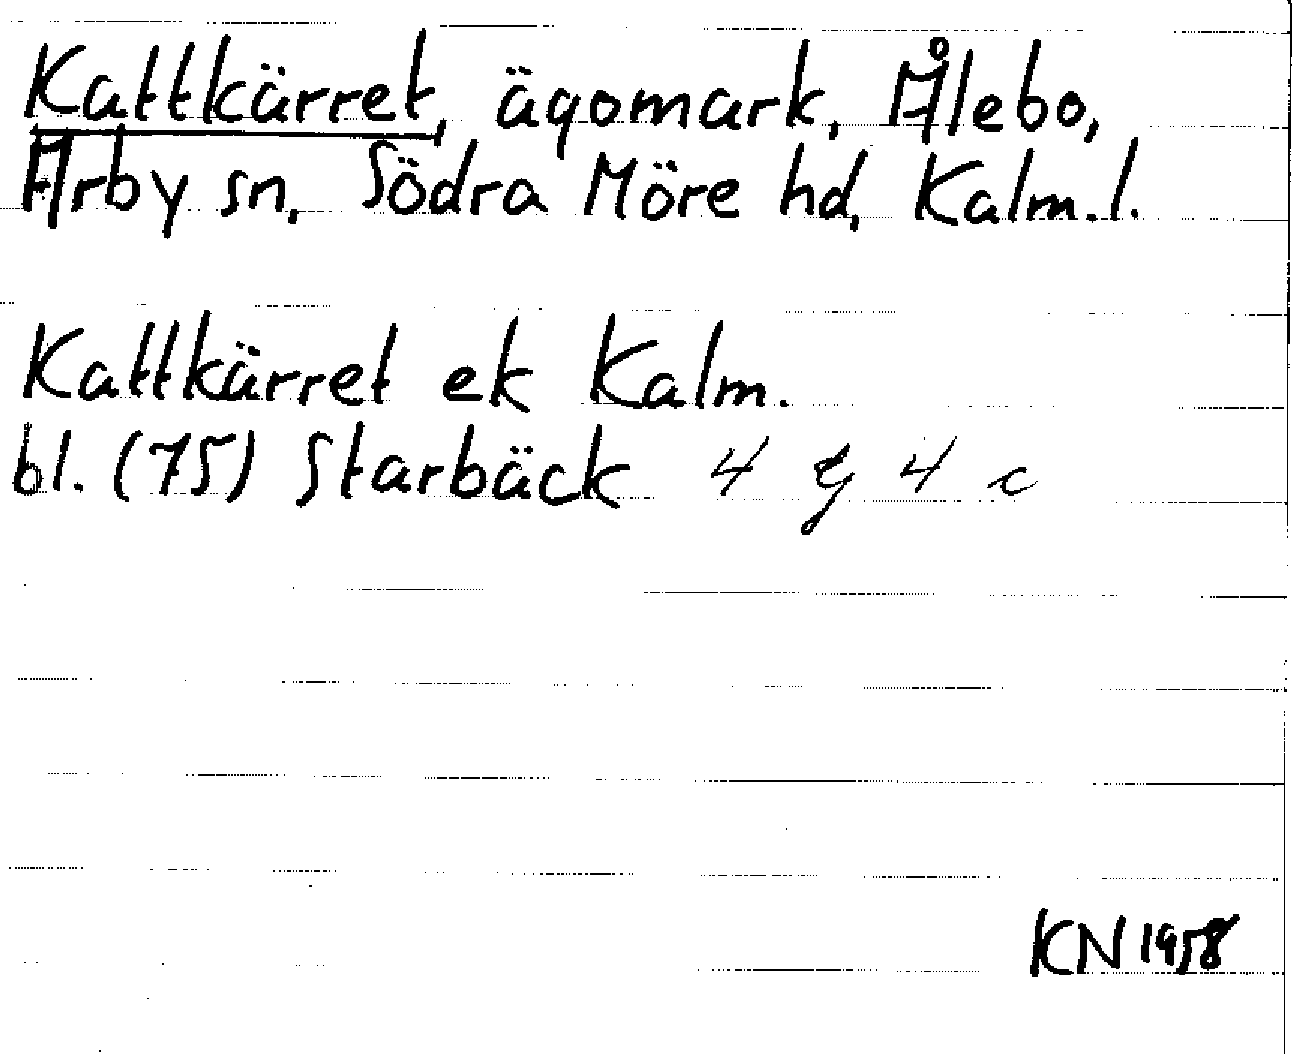 Kattkärret, ägomark, Ålebo,
Arby sn, Södra Möre hd, Kalm. l.
Kattkärret ek Kalm.
bl. (75) Starbäck 4 G 4 c
KN 1958